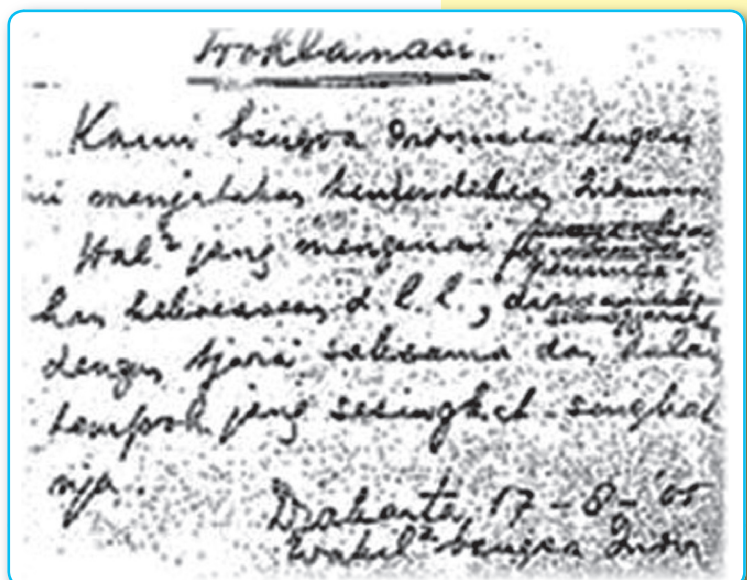 Proklamasi.
Kami bangsa Indonesia dengan
ini menjatakan kemerdekaan Indonesia
Hal² jang mengenai
kan kekoeasaan d.l.l.,
dengan tjara saksama dan dalam
tempoh jang sesingkat-singkat
nja.
Djakarta, 17 - 8 - '05
Wakil² bangsa Indon